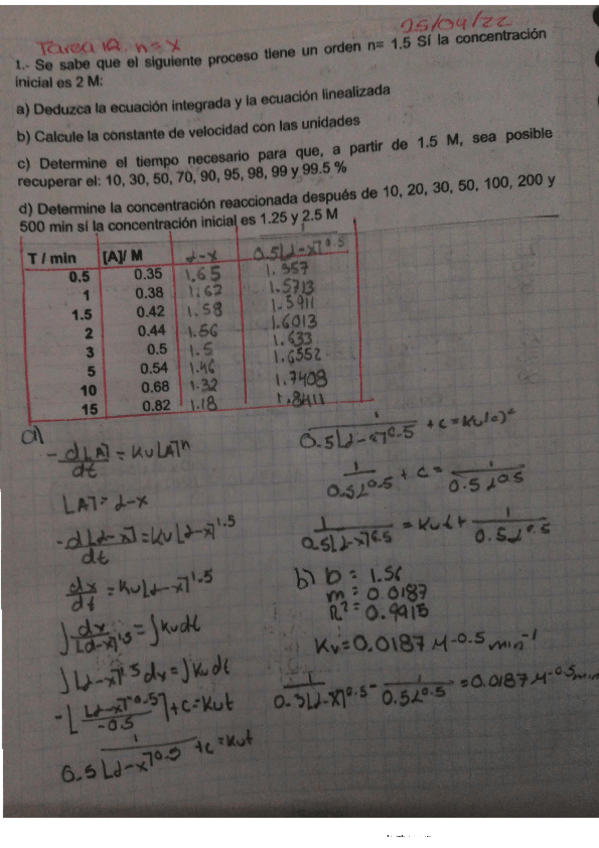 25/04/22
Tarea 12. n=x
1.- Se sabe que el siguiente proceso tiene un orden n= 1.5 Sí la concentración
inicial es 2 M:
a) Deduzca la ecuación integrada y la ecuación linealizada
b) Calcule la constante de velocidad con las unidades
c) Determine el tiempo necesario para que, a partir de 1.5 M, sea posible
recuperar el: 10, 30, 50, 70, 90, 95, 98, 99 y 99.5 %
d) Determine la concentración reaccionada después de 10, 20, 30, 50, 100, 200 y
500 min sí la concentración inicial es 1.25 y 2.5 M
T / min [A]/ M α-x 1/0.5[α-x]^0.5
0.5 0.35 1.65 1.557
1 0.38 1.62 1.5713
1.5 0.42 1.58 1.5911
2 0.44 1.56 1.6013
3 0.5 1.5 1.633
5 0.54 1.46 1.6552
10 0.68 1.32 1.7408
15 0.82 1.18 1.8411
a)
-d[A]/dt = Kv[A]^n
[A] = α-x
-d[α-x]/dt = Kv[α-x]^1.5
dx/dt = Kv[α-x]^1.5
∫dx/[α-x]^1.5 = ∫Kvdt
∫[α-x]^-1.5 dx = ∫Kvdt
-[[α-x]^-0.5/-0.5]+c = Kvt
1/0.5[α-x]^0.5 +c = Kvt
1/0.5[α-x]^0.5 + c = Kv(0)
1/0.5α^0.5 + c = 1/0.5α^0.5
1/0.5[α-x]^0.5 = Kvt + 1/0.5α^0.5
b) b = 1.56
m = 0.0187
R² = 0.9915
Kv = 0.0187 M^-0.5 min^-1
1/0.5[α-x]^0.5 - 1/0.5α^0.5 = 0.0187 M^-0.5 min